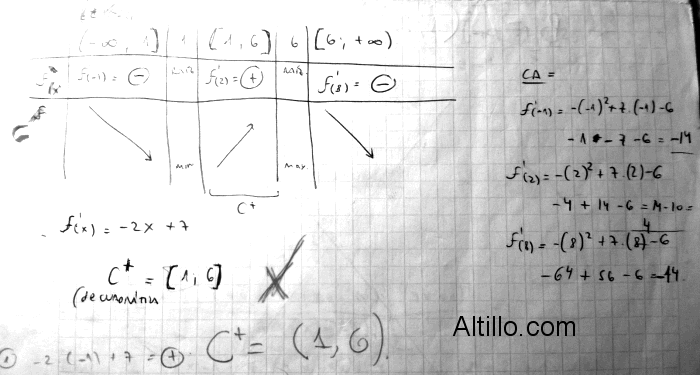 (-∞, 1] 1 [1, 6] 6 [6, +∞)
f(-1) = ⊖ f'(2) = ⊕ f'(8) = ⊖
min max
C+
f'(x) = -2x + 7
C+ = [1, 6] X
-2 (-1) + 7 = ⊕ C+ = (1, 6).
CA =
f'(-1) = -(-1)²+7.(-1)-6
-1 - 7 - 6 = -14
f'(2) = -(2)² + 7.(2)-6
-4 + 14 - 6 = 14-10=
4
f'(8) = -(8)² + 7.(8)-6
-64 + 56 - 6 = -14
Altillo.com